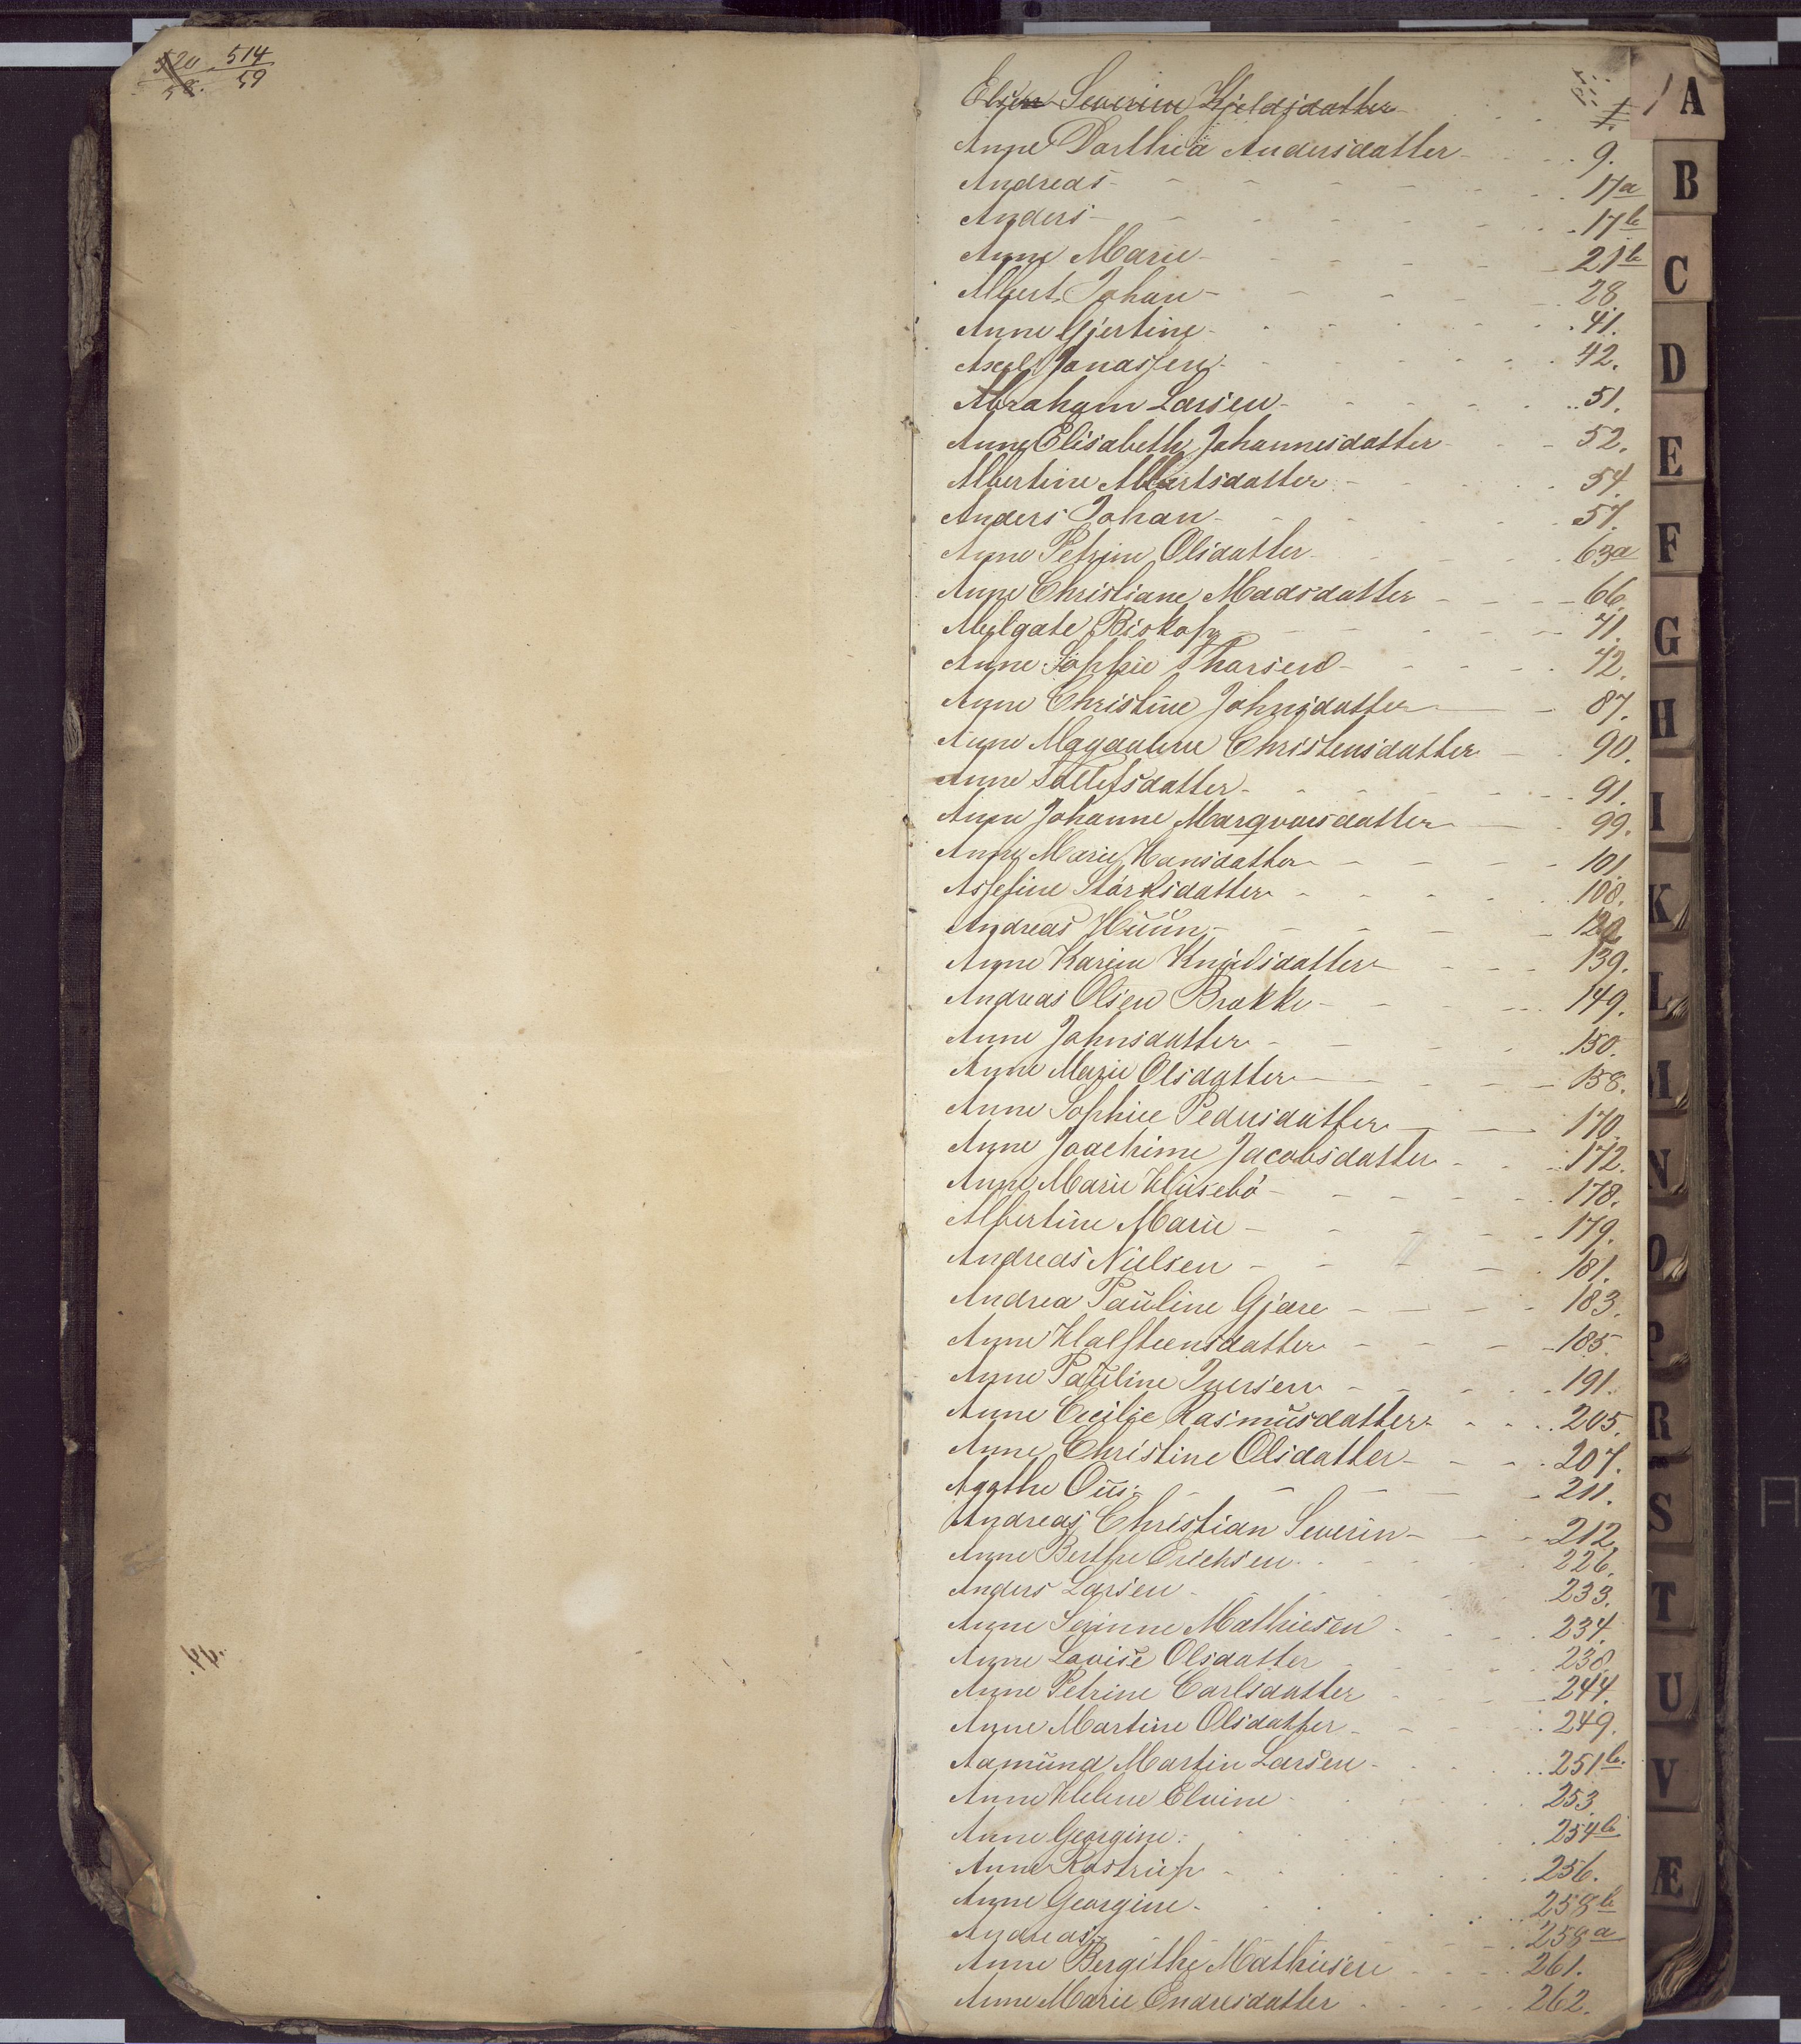 520 514
58. 59
44.
Elsen Severine Kjeldsdatter 1.
Anne Dorthea Andersdatter 9.
Andreas 17a
Anders 17b
Anne Marie 21b
Albert Johan 28.
Anne Gjertine 41.
Axel Jonassen 42.
Abraham Larsen 51.
Anne Elisabeth Johannesdatter 52.
Albertine Albertsdatter 54.
Anders Johan 57.
Anne Petrine Olsdatter 63a
Anne Christiane Madsdatter 66.
Biskop 71.
Anne Sophie Thorsen 72.
Anne Christine Johnsdatter 87.
Anne Magdalene Christensdatter 90.
Anne Tollefsdatter 91.
Anne Johanne Marqvorsdatter 99.
Anne Marie Hansdatter 101.
Assefine Stárksdatter 108.
Andreas Huun 122
Anne Karine Knudsdatter 139.
Andreas Olsen Brakke 149.
Anne Johnsdatter 150.
Anne Marie Olsdatter 158.
Anne Sophie Pedersdatter 170.
Anne Joachime Jacobsdatter 172.
Anne Marie Husebö 178.
Albertine Marie 179.
Andreas Nielsen 181.
Andrea Pauline Gjøre 183.
Anne Halfsteensdatter 185.
Anne Pauline Iversen 191.
Anne Cecilie Rasmusdatter 205.
Anne Christine Olsdatter 207.
Agathe Ous 211.
Andreas Christian Severin 212.
Anne Berthe Erichsen 226.
Anders Larsen 233.
Anne Serinne Mathiesen 234.
Anne Lovise Olsdatter 238.
Anne Petrine Carlsdatter 244.
Anne Martine Olsdatter 249.
Aamund Martin Larsen 251b.
Anne Helene Elvine 253.
Anne Georgine 254b
Anne Rostrup 256.
Anne Georgine 258b
Andreas 258a
Anne Bergithe Mathiesen 261.
Anne Marie Endresdatter 262.
A
B
C
D
E
F
G
H
I
K
L
M
N
O
P
R
S
T
U
V
Æ